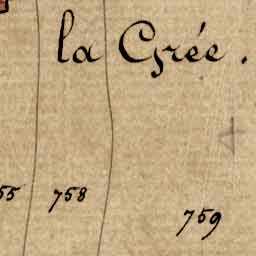 la Grée.
55 758
759